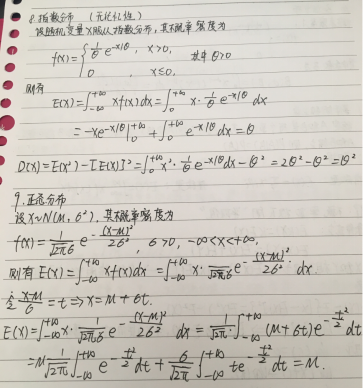 8.指数分布 (无记忆性)
设随机变量X服从指数分布,其概率密度为
f(x)={ 1/θ e^{-x/θ}, x>0, 其中θ>0
0, x≤0,
则有
E(X)=∫_{-∞}^{+∞} xf(x)dx=∫_0^{+∞} x·1/θ e^{-x/θ} dx
=-xe^{-x/θ}|_0^{+∞}+∫_0^{+∞} e^{-x/θ}dx=θ
D(X)=E(X²)-[E(X)]²=∫_0^{+∞} x²·1/θ e^{-x/θ}dx-θ²=2θ²-θ²=θ²
9.正态分布
设X~N(μ,σ²),其概率密度为
f(x)=1/(√2π σ) e^{-(x-μ)²/2σ²}, σ>0, -∞<x<+∞,
则有E(X)=∫_{-∞}^{+∞} xf(x)dx=∫_{-∞}^{+∞} x·1/(√2π σ) e^{-(x-μ)²/2σ²} dx.
令 (x-μ)/σ=t⇒x=μ+σt.
E(X)=∫_{-∞}^{+∞} x·1/(√2π σ) e^{-(x-μ)²/2σ²} dx=1/√2π ∫_{-∞}^{+∞} (μ+σt)e^{-t²/2}dt
=μ 1/√2π ∫_{-∞}^{+∞} e^{-t²/2}dt+σ/√2π ∫_{-∞}^{+∞} te^{-t²/2}dt=μ.